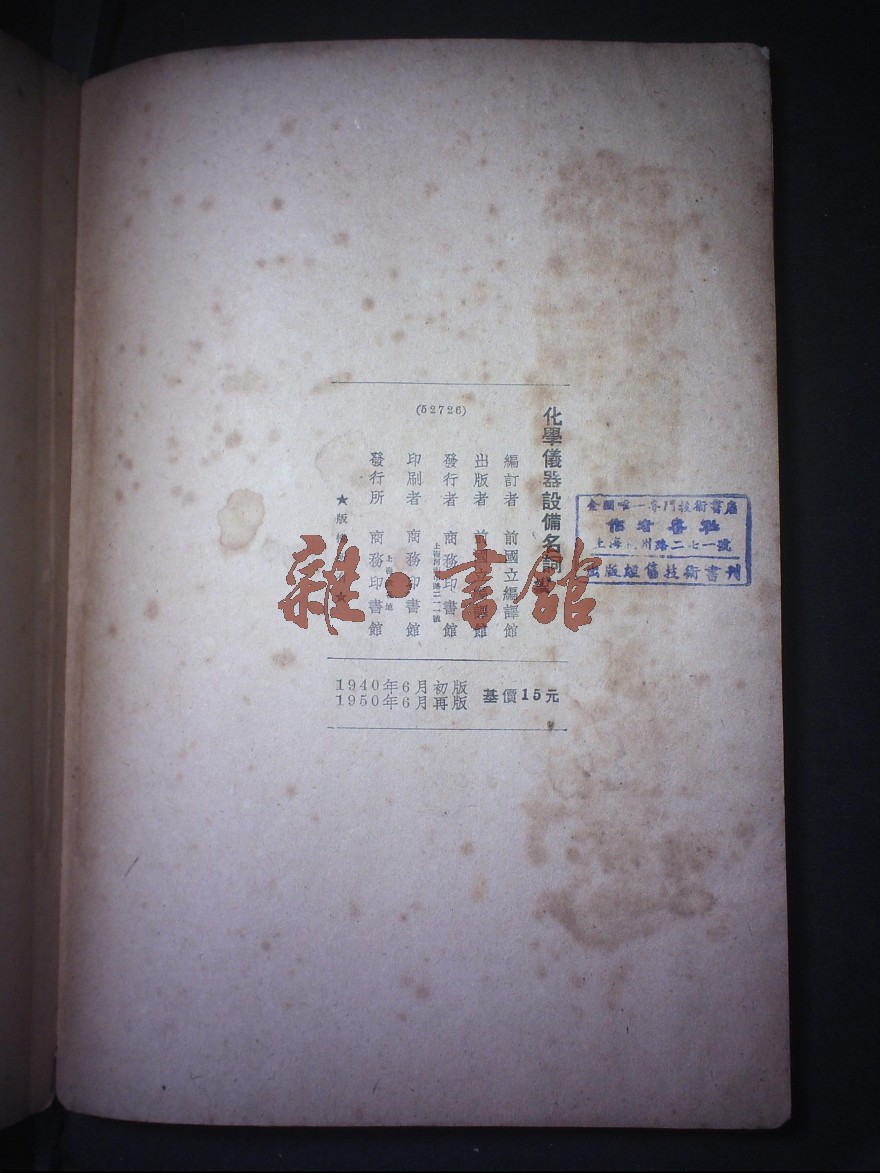 化學儀器設備名詞
(52726)
編訂者 前國立編譯館
出版者 前國立編譯館
發行者 商務印書館
印刷者 商務印書館
發行所 商務印書館
★版
★
1940年6月初版
1950年6月再版
基價15元
雜·書館
全國唯一專門技術書店
上海 州路二七一號
出版經售技術書刊